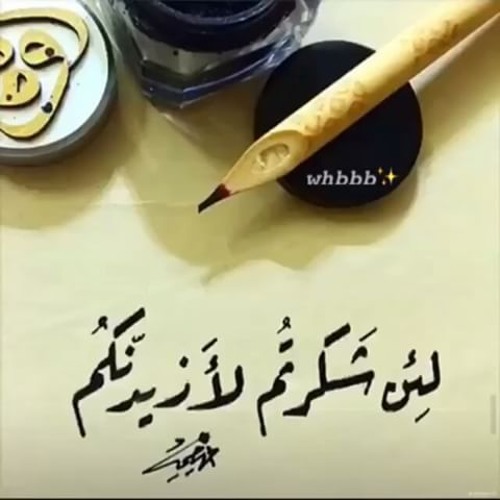 whbbb✨
لئن شَكرتُم لأَزيدنّكُم